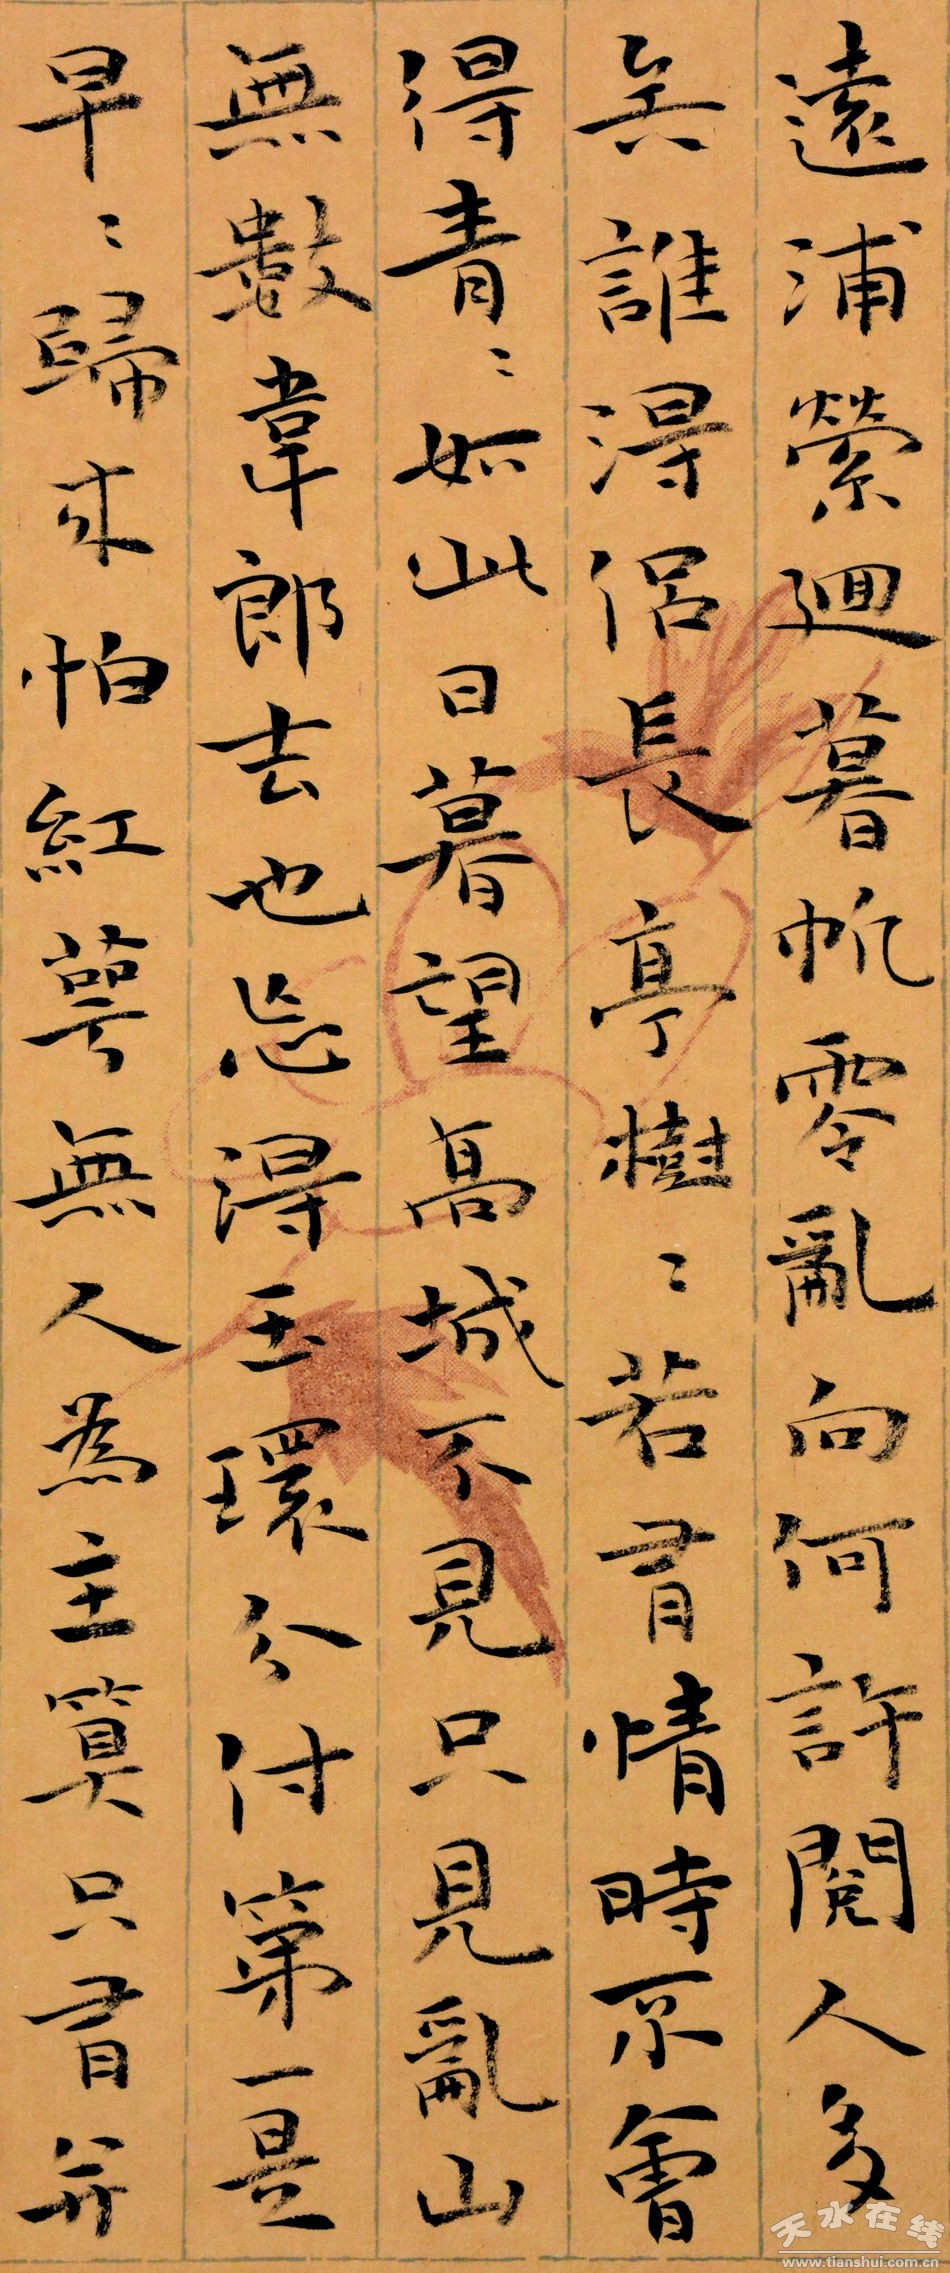 遠浦縈廻暮帆零亂向何許閱人多
矣誰得佀長亭樹〻若有情時不會
得青〻如此日暮望高城不見只見亂山
無數韋郎去也忘得玉環分付第一是
早〻歸來怕紅萼無人為主算只有并
天水在线
www.tianshui.com.cn